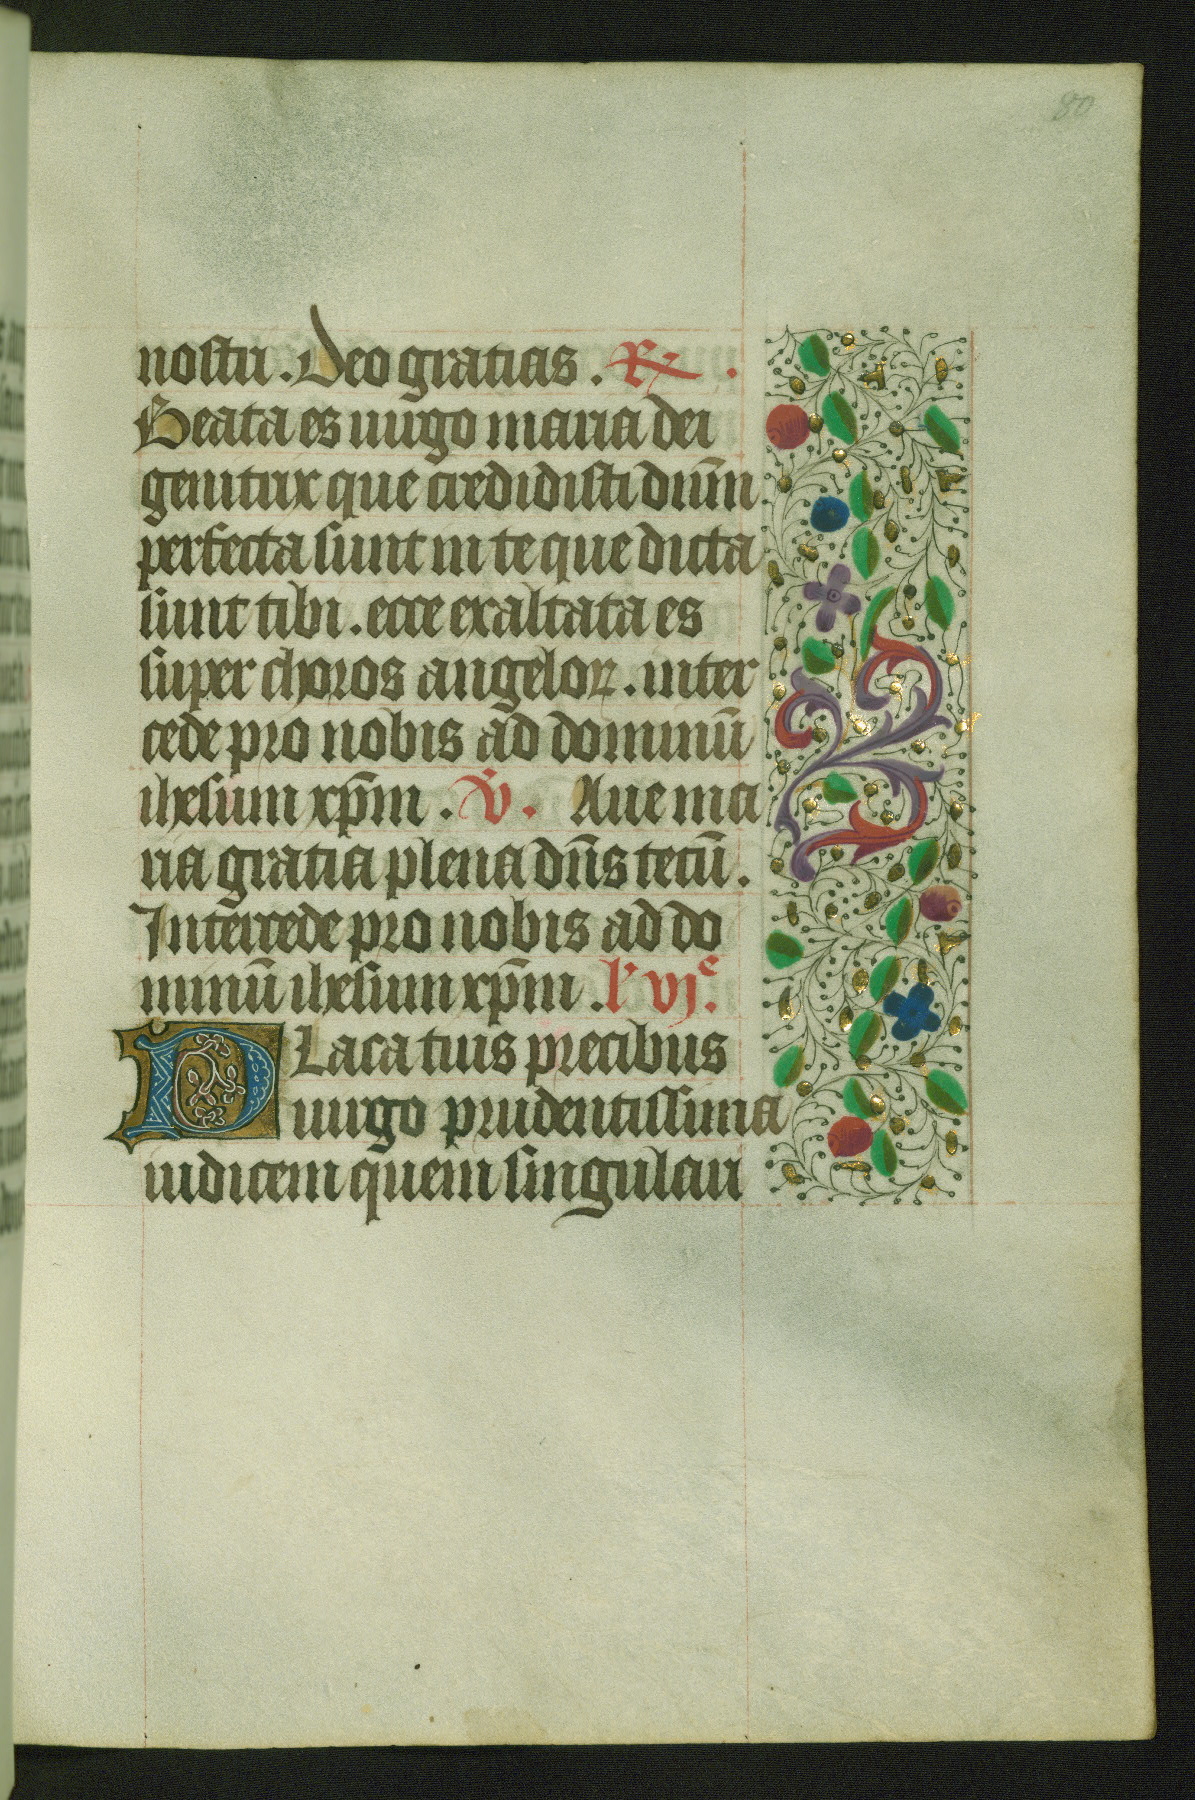 80
nostri . Deo gratias . R⁊ .
Beata es uirgo maria dei
genitrix que credidisti dn̄m
perfecta sunt in te que dicta
sunt tibi . ecce exaltata es
super choros angeloꝝ . inter
cede pro nobis ad dominū
ihesum xp̄m . v̇ . Aue ma
ria gratia plena dn̄s tecū .
Intercede pro nobis ad do
minū ihesum xp̄m . l' vjͤ.
PLaca tuis precibus
uirgo prudentissima
iudicem quem singulari